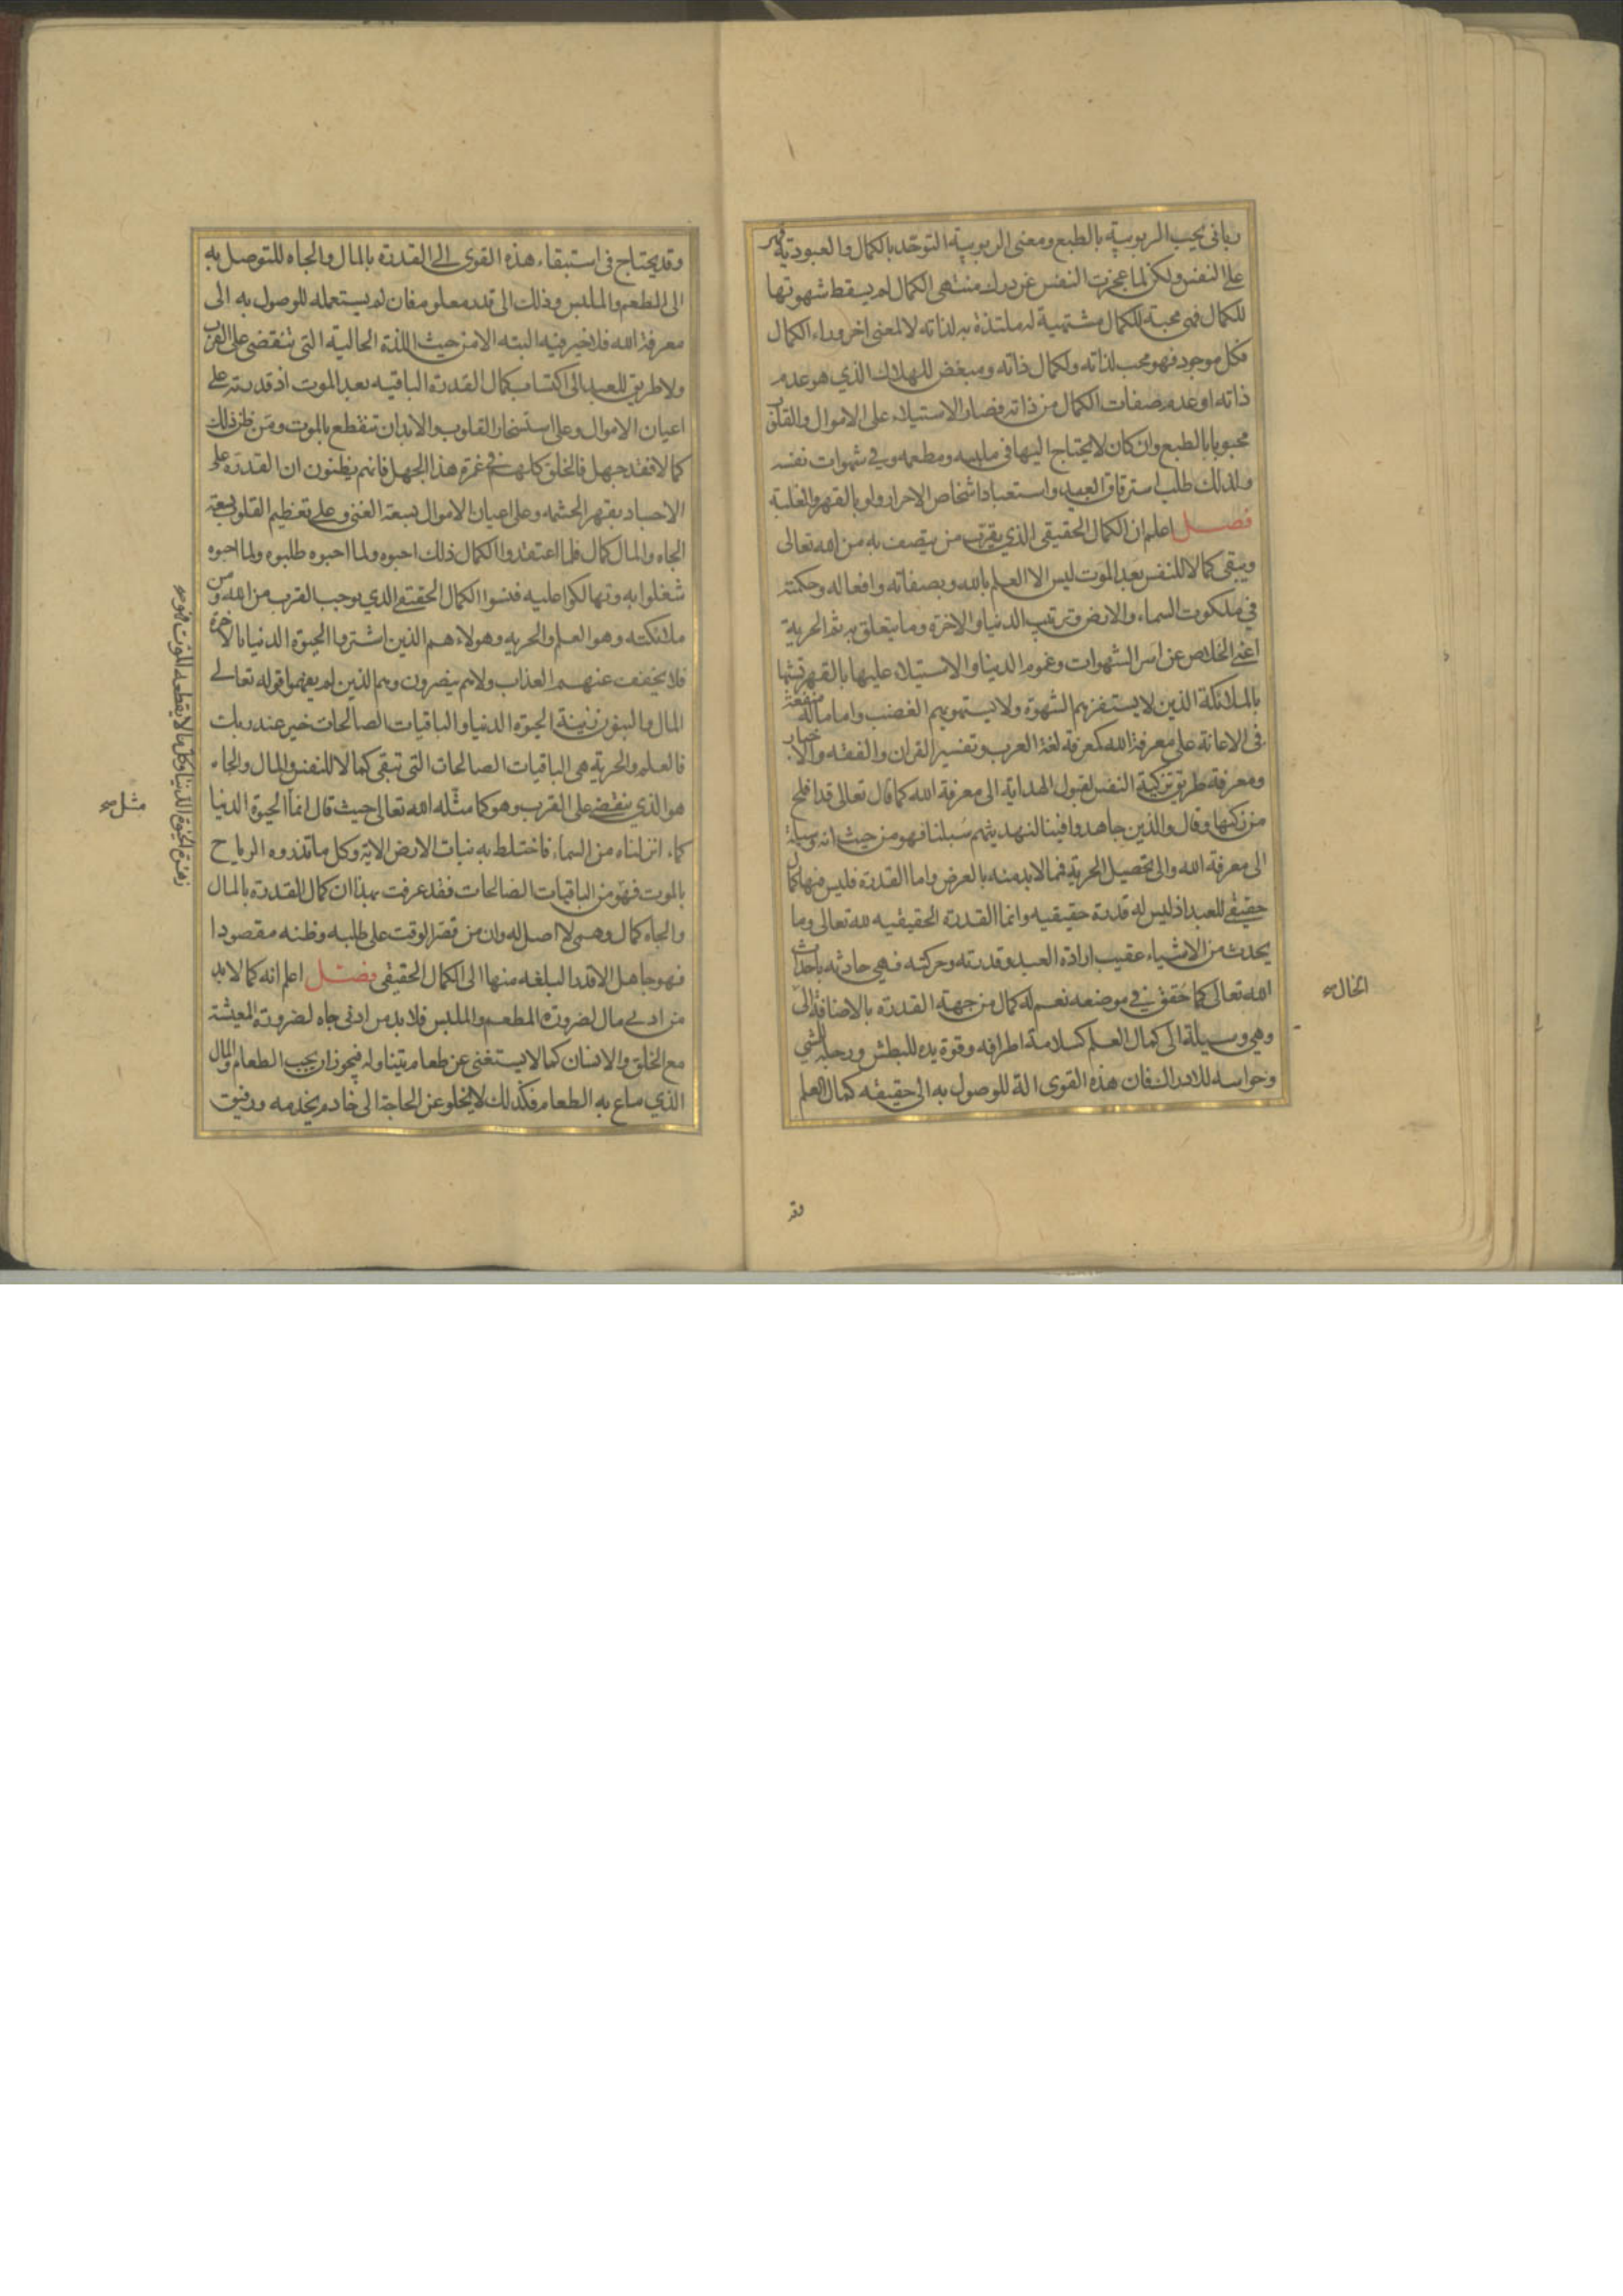 ربانى يحب الربوبية بالطبع ومعنى الربوبية التوحد بالكمال والعبودية قهر
على النفس ولكن لما عجزت النفس عن درك منتهى الكمال لم يسقط شهوتها
للكمال فهى محبة للكمال مشتهية له ملتذة به لذاته لا لمعنى اخر وراء الكمال
فكل موجود فهو محب لذاته ولكمال ذاته ومبغض للهلاك الذي هو عدم
ذاته او عدم صفات الكمال من ذاته فصار الاستيلاء على الاموال والقلوب
محبوبا بالطبع وان كان لا يحتاج اليها فى ملبسه ومطعمه وفي شهوات نفسه
ولذلك طلب استرقاق العبيد واستعباد اشخاص الاحرار ولو بالقهر والغلبة
فصل اعلم ان الكمال الحقيقى الذي يقرب من يتصف به من الله تعالى
ويبقى كمالا للنفس بعد الموت ليس الا العلم بالله وبصفاته وافعاله وحكمته
في ملكوت السماء والارض وترتيب الدنيا والاخرة وما يتعلق به ثم الحرية
اعني الخلاص عن اسر الشهوات وغموم الدنيا والاستيلاء عليها بالقهر تشبها
بالملائكة الذين لا يستفزهم الشهوة ولا يستهويهم الغضب واما ما له منفعة
فى الاعانة على معرفة الله كمعرفة لغة العرب وتفسير القران والفقه والاخبار
ومعرفة طريق تزكية النفس لقبول الهداية الى معرفة الله كما قال تعالى قد افلح
من زكيها وقال والذين جاهدوا فينا لنهدينهم سبلنا فهو من حيث انه وسيلة
الى معرفة الله والى تحصيل الحرية فمما لا بد منه بالعرض واما القدرة فليس فيها كمال
حقيقي للعبد اذ ليس له قدرة حقيقيه وانما القدرة الحقيقيه لله تعالى وما
يحدث من الاشياء عقيب ارادة العبد وقدرته وحركته فهي حادثه باحداث
الله تعالى كما حقق في موضعه نعم له كمال من جهة القدرة بالاضافة الى
الحال
وهى وسيلة الى كمال العلم كسلامة اطرافه وقوة يده للبطش ورجله للمشي
وحواسه للادراك فان هذه القوى الة للوصول به الى حقيقه كمال العلم
وقد
وقد يحتاج فى استبقاء هذه القوى الى القدرة بالمال والجاه للتوصل به
الى المطعم والملبس وذلك الى قدر معلوم فان لم يستعمله للوصول به الى
معرفة الله فلا خير فيه البته الا من حيث اللذة الحالية التى تنقضى على القرب
ولا طريق للعبد الى اكتساب كمال القدرة الباقيه بعد الموت اذ قدرته على
اعيان الاموال وعلى استسخار القلوب والابدان تنقطع بالموت ومن ظن ذلك
كمالا فقد جهل فالخلق كلهم في غمرة هذا الجهل فانهم يظنون ان القدرة على
الاجساد بقهر الحشمه وعلى اعيان الاموال بسعة الغنى وعلى تعظيم القلوب بسعة
الجاه والمال كمال فلما اعتقدوا الكمال ذلك احبوه ولما احبوه طلبوه ولما احبوه
شغلوا به وتهالكوا عليه فنسوا الكمال الحقيقي الذي يوجب القرب من الله ومن
ملائكته وهو العلم والحريه وهولاء هم الذين اشتروا الحيوة الدنيا بالاخرة
فلا يخفف عنهم العذاب ولا هم ينصرون وهم الذين لم يفهموا قوله تعالى
المال والبنون زينة الحيوة الدنيا والباقيات الصالحات خير عند ربك
فالعلم والحرية هى الباقيات الصالحات التى تبقى كمالا للنفس والمال والجاه
هو الذي ينقضى على القرب وهو كما مثله الله تعالى حيث قال انما الحيوة الدنيا
مثل
كماء انزلناه من السماء فاختلط به نبات الارض الاية وكل ما تذروه الرياح
زهرة الحيوة الدنيا وكل ما لا يقطعه الموت فهو
بالموت فهو من الباقيات الصالحات فقد عرفت بهذا ان كمال القدرة بالمال
والجاه كمال وهمى لا اصل له وان من قصر الوقت على طلبه وظنه مقصودا
فهو جاهل الا قدر البلغه منها الى الكمال الحقيقى فصل اعلم انه كما لا بد
من ادنى مال لضرورة المطعم والملبس فلا بد من ادنى جاه لضرورة المعيشة
مع الخلق والانسان كما لا يستغنى عن طعام يتناوله فيجوز ان يحب الطعام والمال
الذي يباع به الطعام فكذلك لا يخلو عن الحاجة الى خادم يخدمه ورفيق